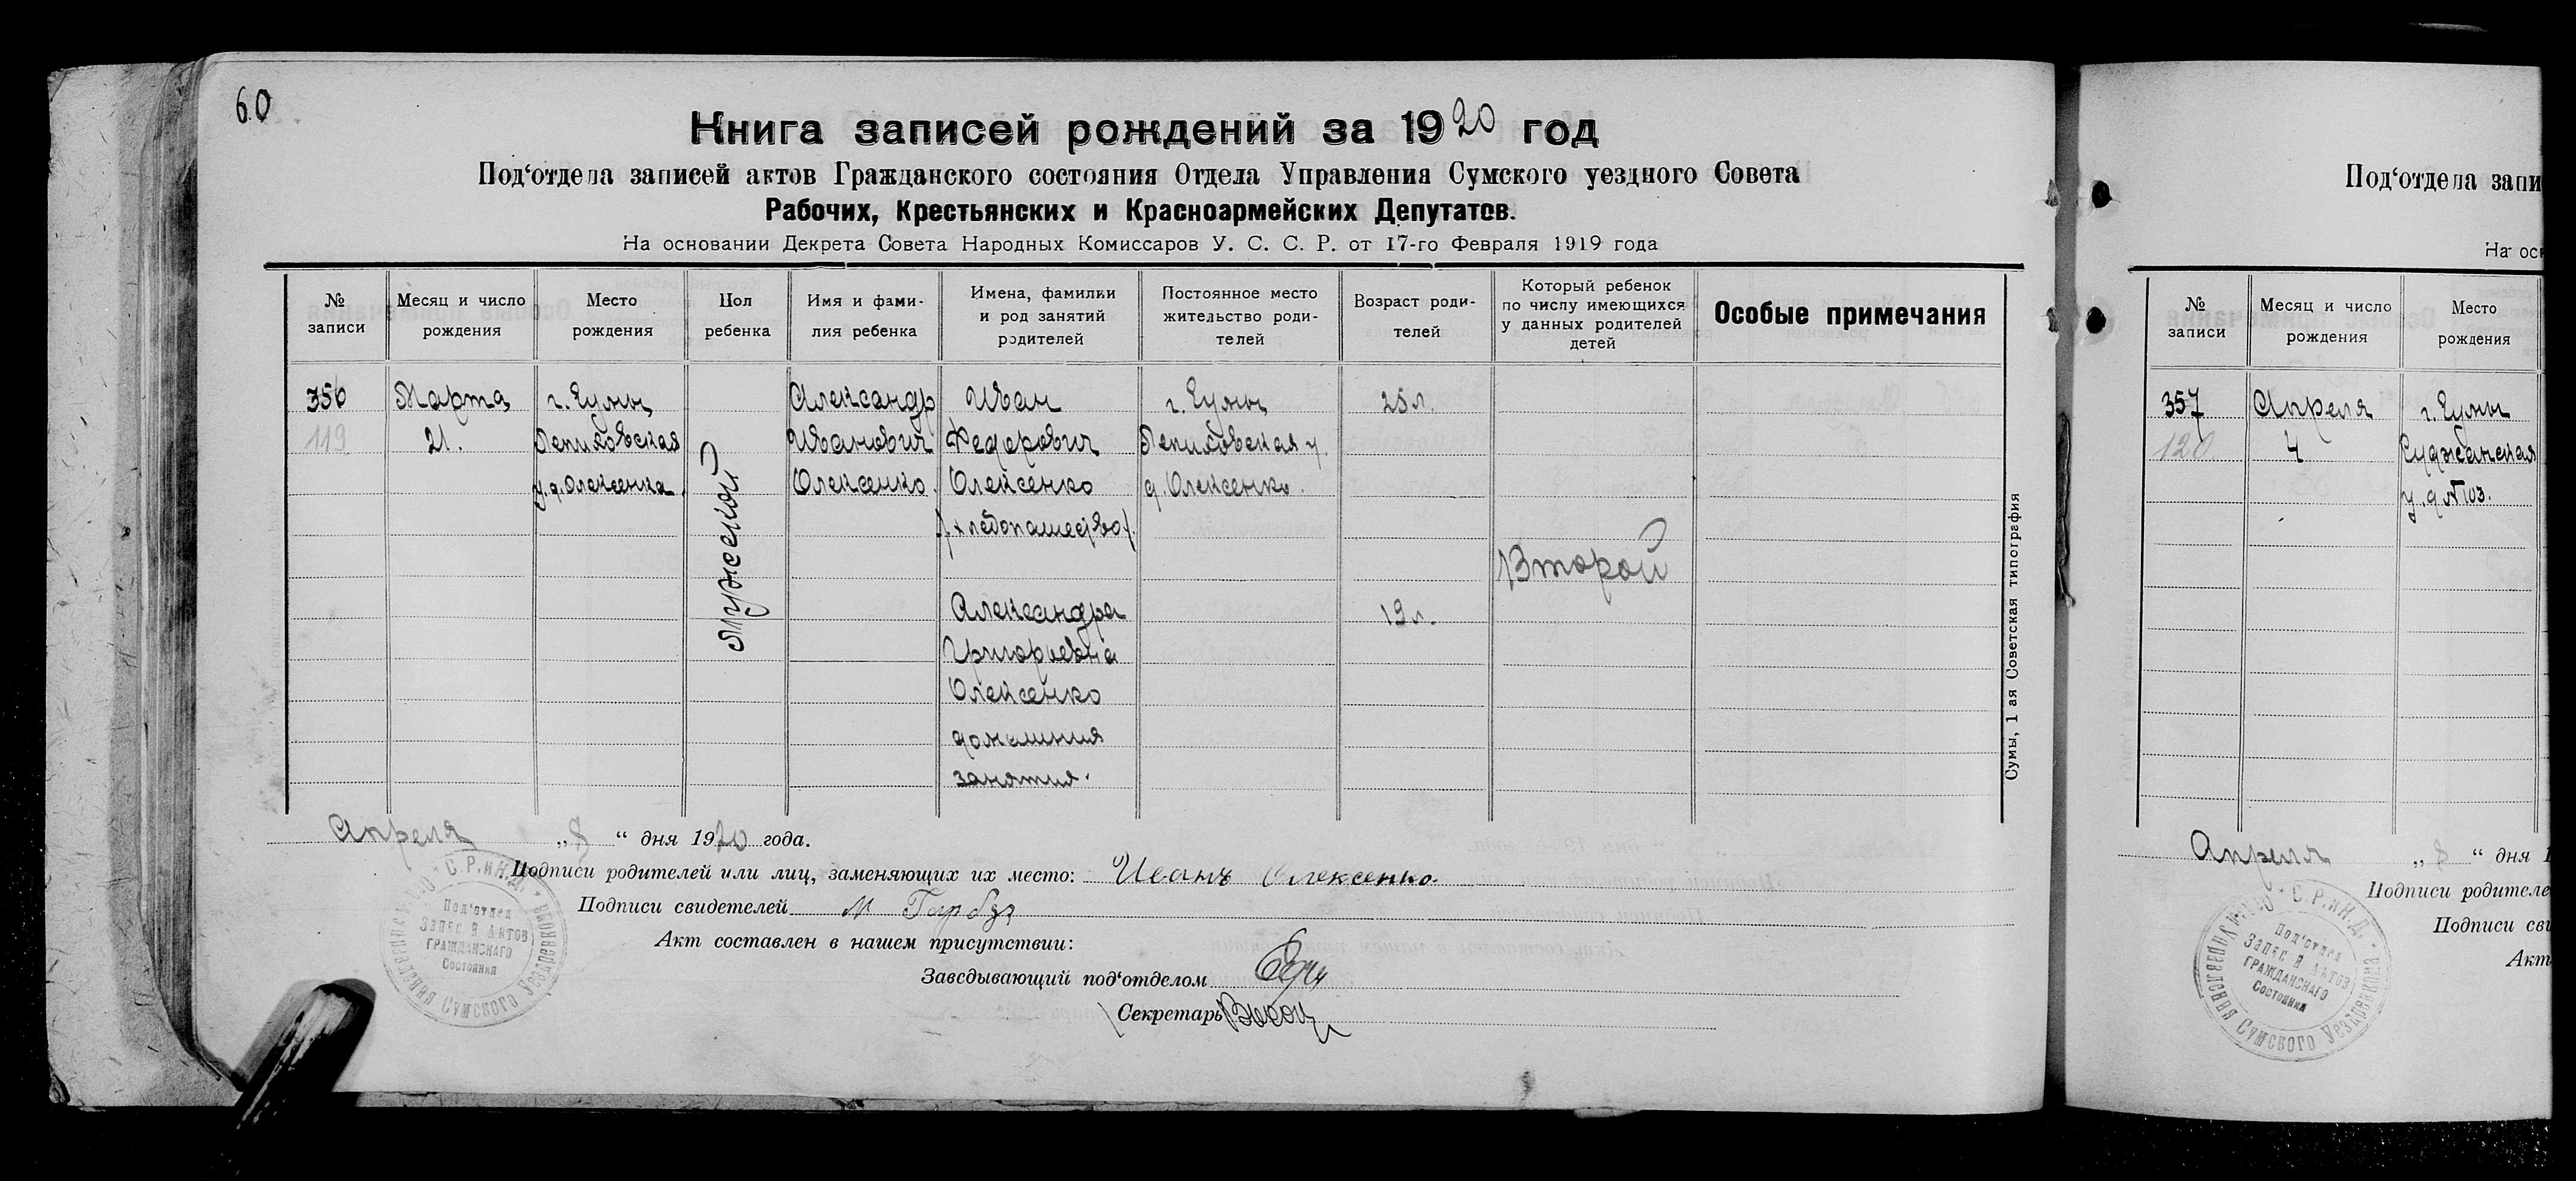 60
Книга записей рождений за 1920 год
Под‘отдела записей актов Гражданского состояния Отдела Управления Сумского уездного Совета
Рабочих, Крестьянских и Красноармейских Депутатов.
На основании Декрета Совета Народных Комиссаров У. С. С. Р. от 17-го Февраля 1919 года
№ записи
Месяц и число рождения
Место рождения
Пол ребенка
Имя и фами-
лия ребенка
Имена, фамилии
и род занятий
родителей
Постоянное место
жительство роди-
телей
Возраст роди-
телей
Который ребенок
по числу имеющихся
у данных родителей
детей
Особые примечания
356
119
Марта
21.
г. Сумы
у. д. Олексенка
Мужской
Александр
Иванович
Олексенко.
Иван
Федорович
Олексенко
Александра
Григориевна
Олексенко
домашния
занятия.
г. Сумы
д. Олексенко.
25 л.
19 л.
Второй
Сумы, 1 ая Советская типография
Апреля „8“ дня 1920 года.
Подписи родителей или лиц, заменяющих их место: Иванъ Олексенко.
Подписи свидетелей
Акт составлен в нашем присутствии:
Заведывающий под‘отделом
Секретарь
Под‘отдел
Запис й Актов
Гражданскаго
Состояния
Под‘отдела запи
На осн
№ записи
Месяц и число рождения
Место рождения
357
120.
Апреля
4
г. Сумы
Суджанская
у. д №103.
Апреля „8“ дня 1
Подписи родителе
Подписи сви
Акт
Под‘отдел
Запис й Актов
Гражданскаго
Состояния